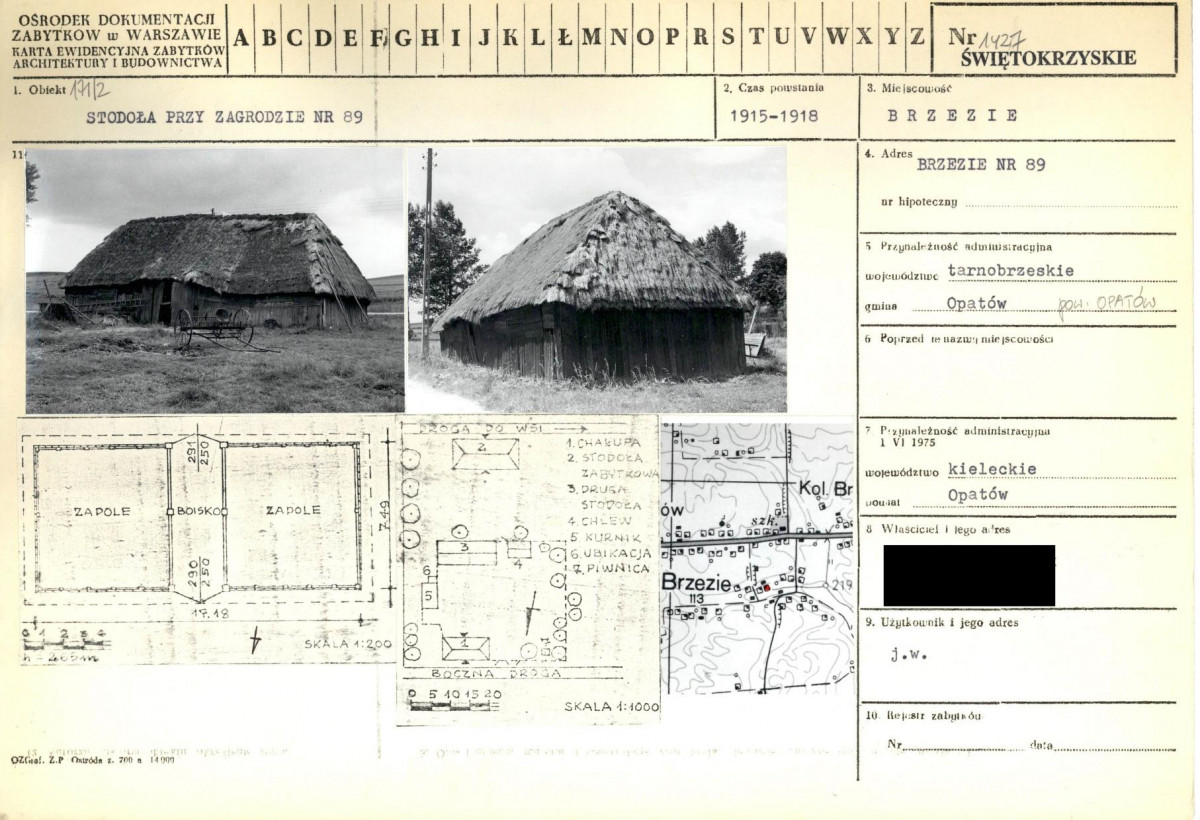 OŚRODEK DOKUMENTACJI
ZABYTKÓW w WARSZAWIE
KARTA EWIDENCYJNA ZABYTKÓW
ARCHITEKTURY I BUDOWNICTWA
A B C D E F G H I J K L Ł M N O P R S T U V W X Y Z
Nr 1427
ŚWIĘTOKRZYSKIE
1. Obiekt 171/2
STODOŁA PRZY ZAGRODZIE NR 89
2. Czas powstania
1915-1918
3. Miejscowość
BRZEZIE
11
4. Adres
BRZEZIE NR 89
nr hipoteczny
5 Przynależność administracyjna
województwo tarnobrzeskie
gmina Opatów pow. OPATÓW
6 Poprzednie nazwy miejscowości
7 Przynależność administracyjna
1 VI 1975
województwo kieleckie
powiat Opatów
8 Właściciel i jego adres
9. Użytkownik i jego adres
j.w.
10. Rejestr zabytków
Nr data
291
250
ZAPOLE BOISKO ZAPOLE
7.49
290
250
17.18
0 1 2 3 4
SKALA 1:200
DROGA DO WSI
2
1. CHAŁUPA
2. STODOŁA
ZABYTKOWA
3. DRUGA
STODOŁA
4. CHLEW
5 KURNIK
6. UBIKACJA
7. PIWNICA
3
4
6
5
1
7
BOCZNA DROGA
0 5 10 15 20
SKALA 1:1000
Kol. Br
ów
szk.
Brzezie
113
219
OZGraf. Z.P Ostróda z. 700 n 14 000